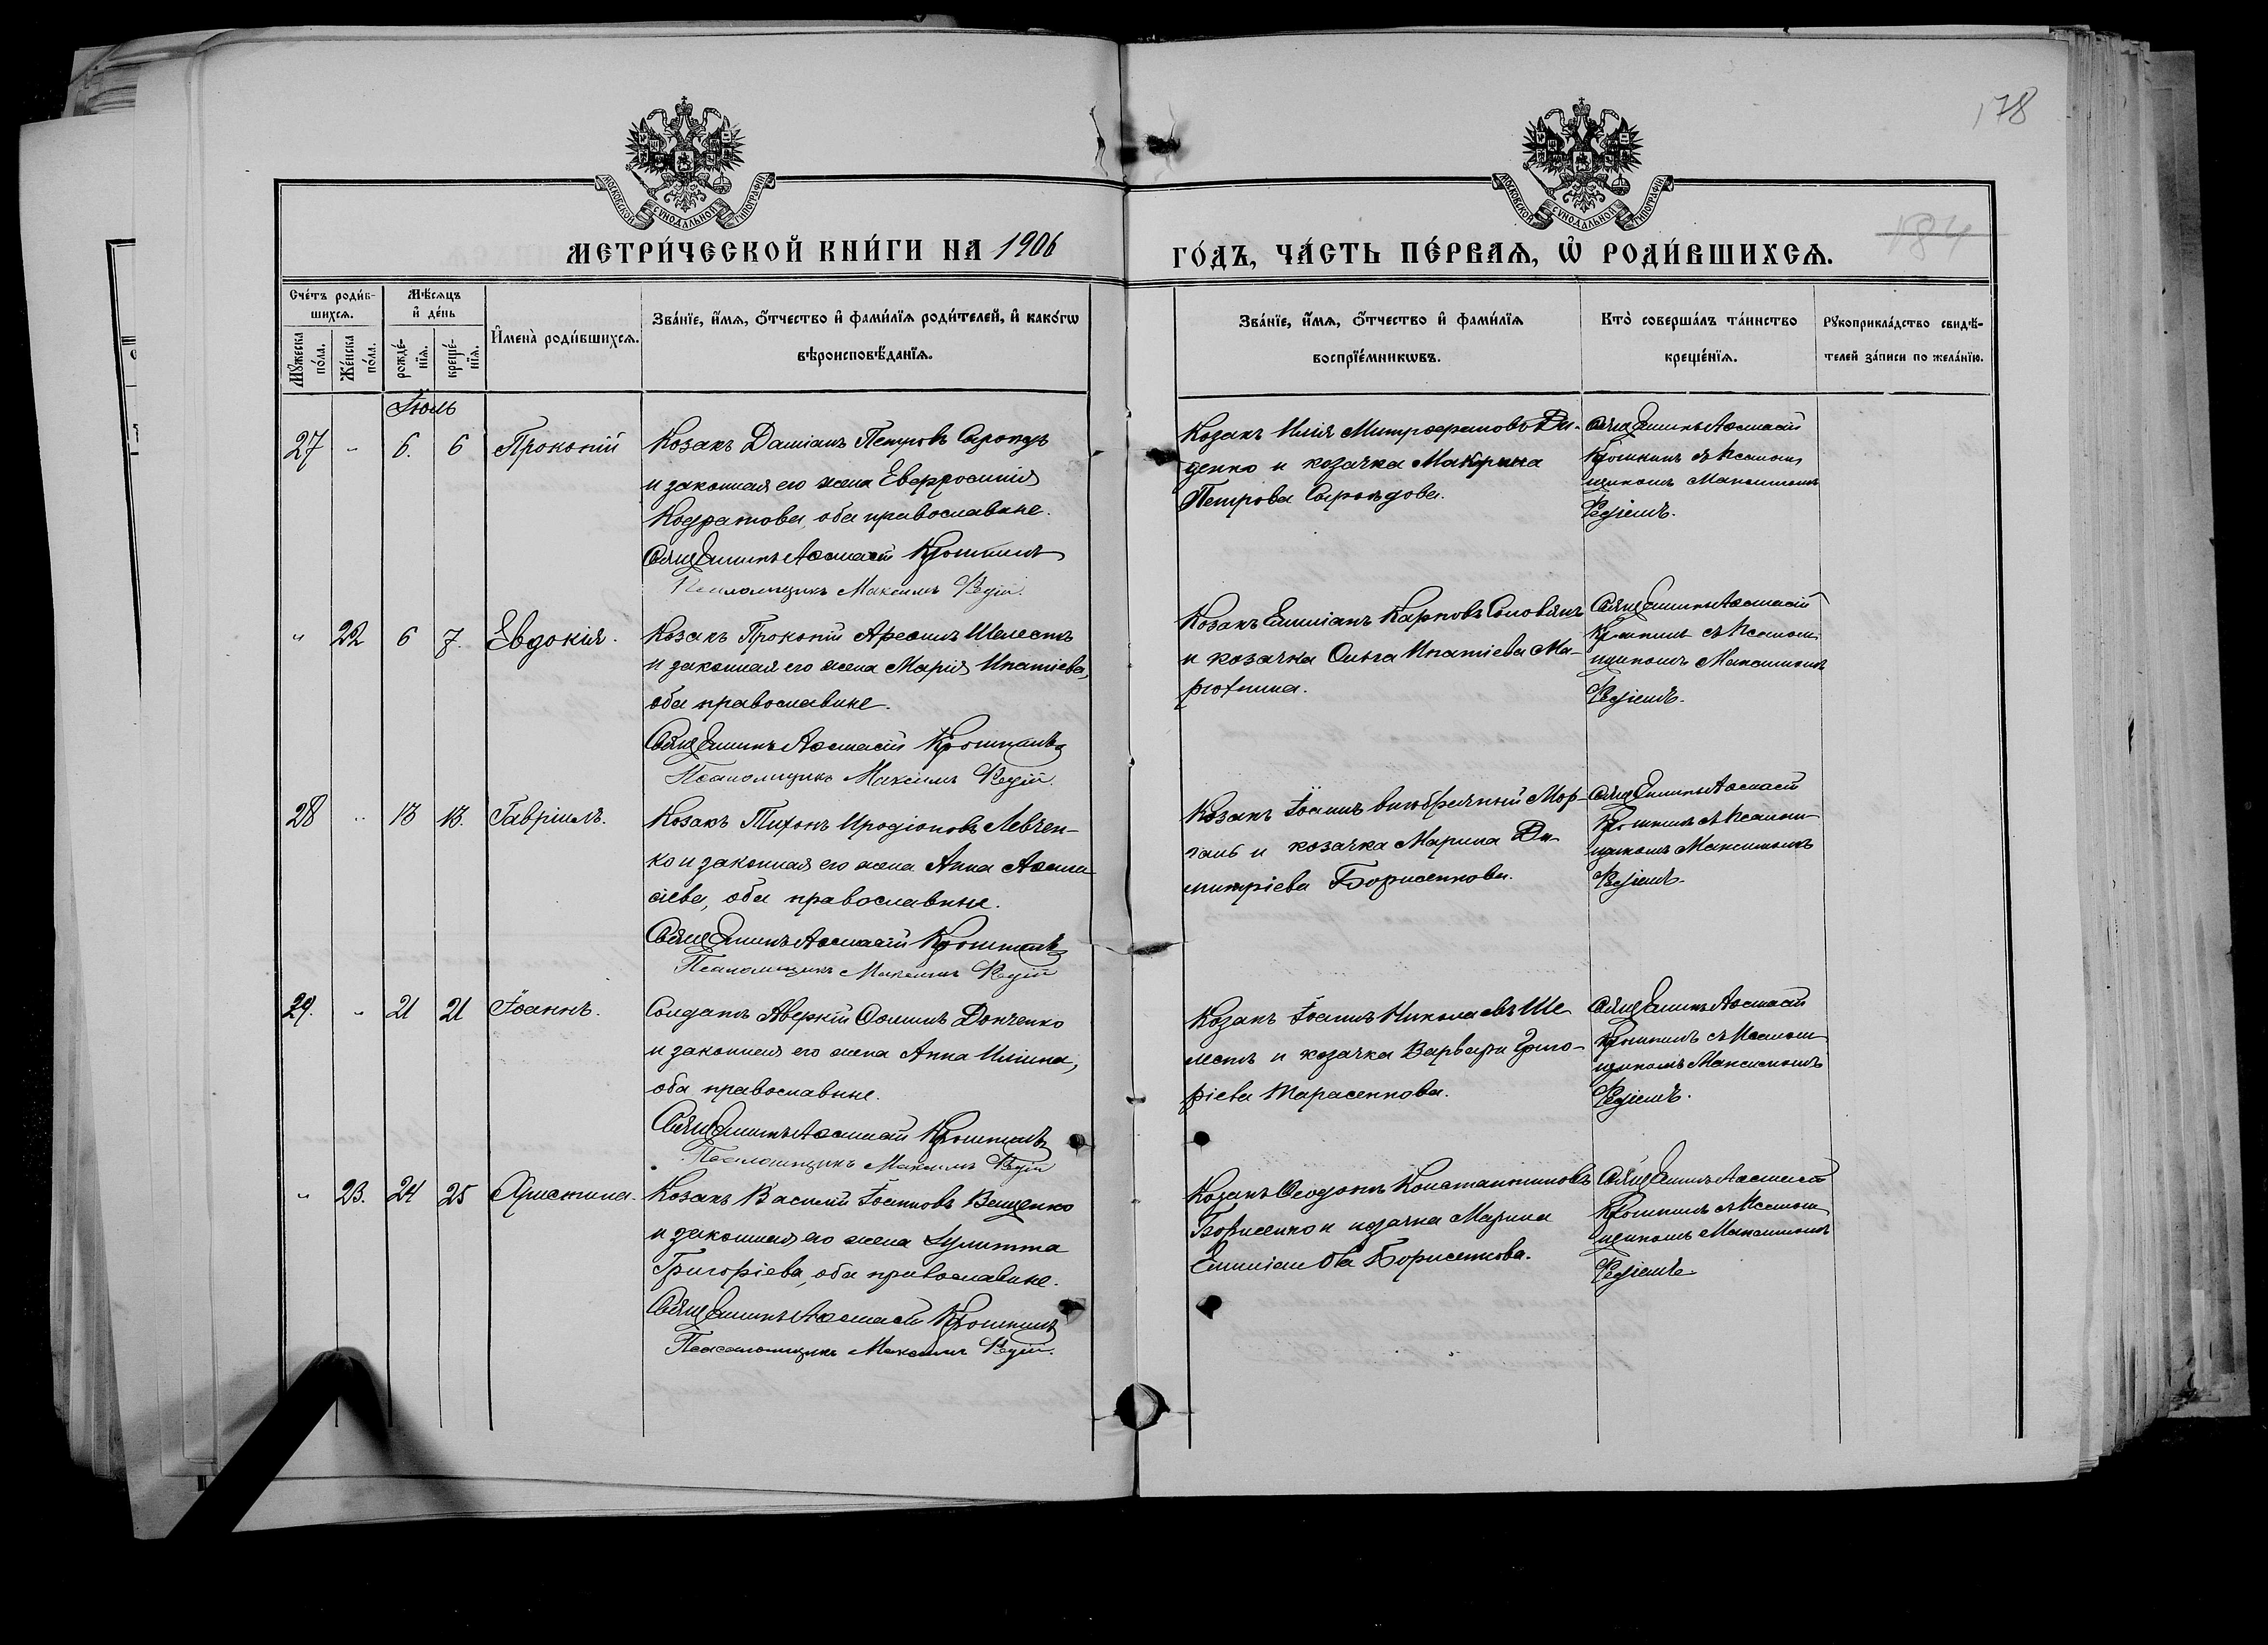 178
МОСКОВСКОЙ СУНОДАЛЬНОЙ ТИПОГРАФІИ
МОСКОВСКОЙ СУНОДАЛЬНОЙ ТИПОГРАФІИ
184
МЕТРИ́ЧЕСКОЙ КНИ́ГИ НА 1906
ГО́ДЪ, ЧА́СТЬ ПЕ́РВАѦ, Ѡ҆ РОДИ́ВШИХСѦ.
Сче́тъ роди́вшихсѧ.
Мꙋ́жеска по́ла.
Же́нска по́ла.
Мѣ́сѧцъ и҆ де́нь
рожде́нїѧ.
креще́нїѧ.
И҆мена̀ роди́вшихсѧ.
Зва́нїе, и҆́мѧ, ѻ҆́тчество и҆ фами́лїѧ роди́телей, и҆ како́гѡ
вѣроисповѣ́данїѧ.
Зва́нїе, и҆́мѧ, ѻ҆́тчество и҆ фами́лїѧ
воспрїе́мникѡвъ.
Кто̀ соверша́лъ та́инство
креще́нїѧ.
Рꙋкоприкла́дство свидѣ́-
телей за́писи по жела́нїю.
Іюль
27 - 6. 6 Прокопій
Козакъ Даміанъ Петровъ
и законная его жена Евфросинія
Кодратова, оба православные.
Священникъ Аѳанасій
Псаломщикъ Максимъ Редій.
Козакъ Илія Митрофановъ Ди-
денко и козачка Макрина
Петрова
Священникъ Аѳанасій
съ псалом-
щикомъ Максимомъ
Редіемъ.
" 22 6 7. Евдокія.
Козакъ Прокопій Шелестъ
и законная его жена Марія Ипатіева,
оба православные.
Священникъ Аѳанасій
Псаломщикъ Максимъ Редій.
Козакъ Емиліанъ Карповъ
и козачка Ольга Ипатіева Ма-
Священникъ Аѳанасій
съ псалом-
щикомъ Максимомъ
Редіемъ.
28 " 13 13. Гавріилъ.
Козакъ Тихонъ Иродіоновъ Левчен-
ко и законная его жена Анна Аѳана-
сіева, оба православные.
Священникъ Аѳанасій
Псаломщикъ Максимъ Редій
Козакъ Іоаннъ внѣбрачный Мор-
гань и козачка Марина Ди-
митріева Борисенкова.
Священникъ Аѳанасій
съ псалом-
щикомъ Максимомъ
Редіемъ.
29. " 21 21 Іоаннъ.
Солдатъ Аверкій Ѳоминъ Донченко
и законная его жена Анна Иліина,
оба православные.
Священникъ Аѳанасій
Псаломщикъ Максимъ Редій
Козакъ Іоаннъ Николаевъ Ше-
лестъ и козачка Варвара Григо-
ріева Тарасенкова.
Священникъ Аѳанасій
съ псалом-
щикомъ Максимомъ
Редіемъ.
" 23. 24 25 Христина.
Козакъ Василій Іоанновъ Ващенко
и законная его жена Іулитта
Григоріева, оба православные.
Священникъ Аѳанасій
Псаломщикъ Максимъ Редій.
Козакъ Ѳеодотъ Константиновъ
Борисенко и козачка Марина
Емиліанова Борисенкова.
Священникъ Аѳанасій
съ псалом-
щикомъ Максимомъ
Редіемъ.